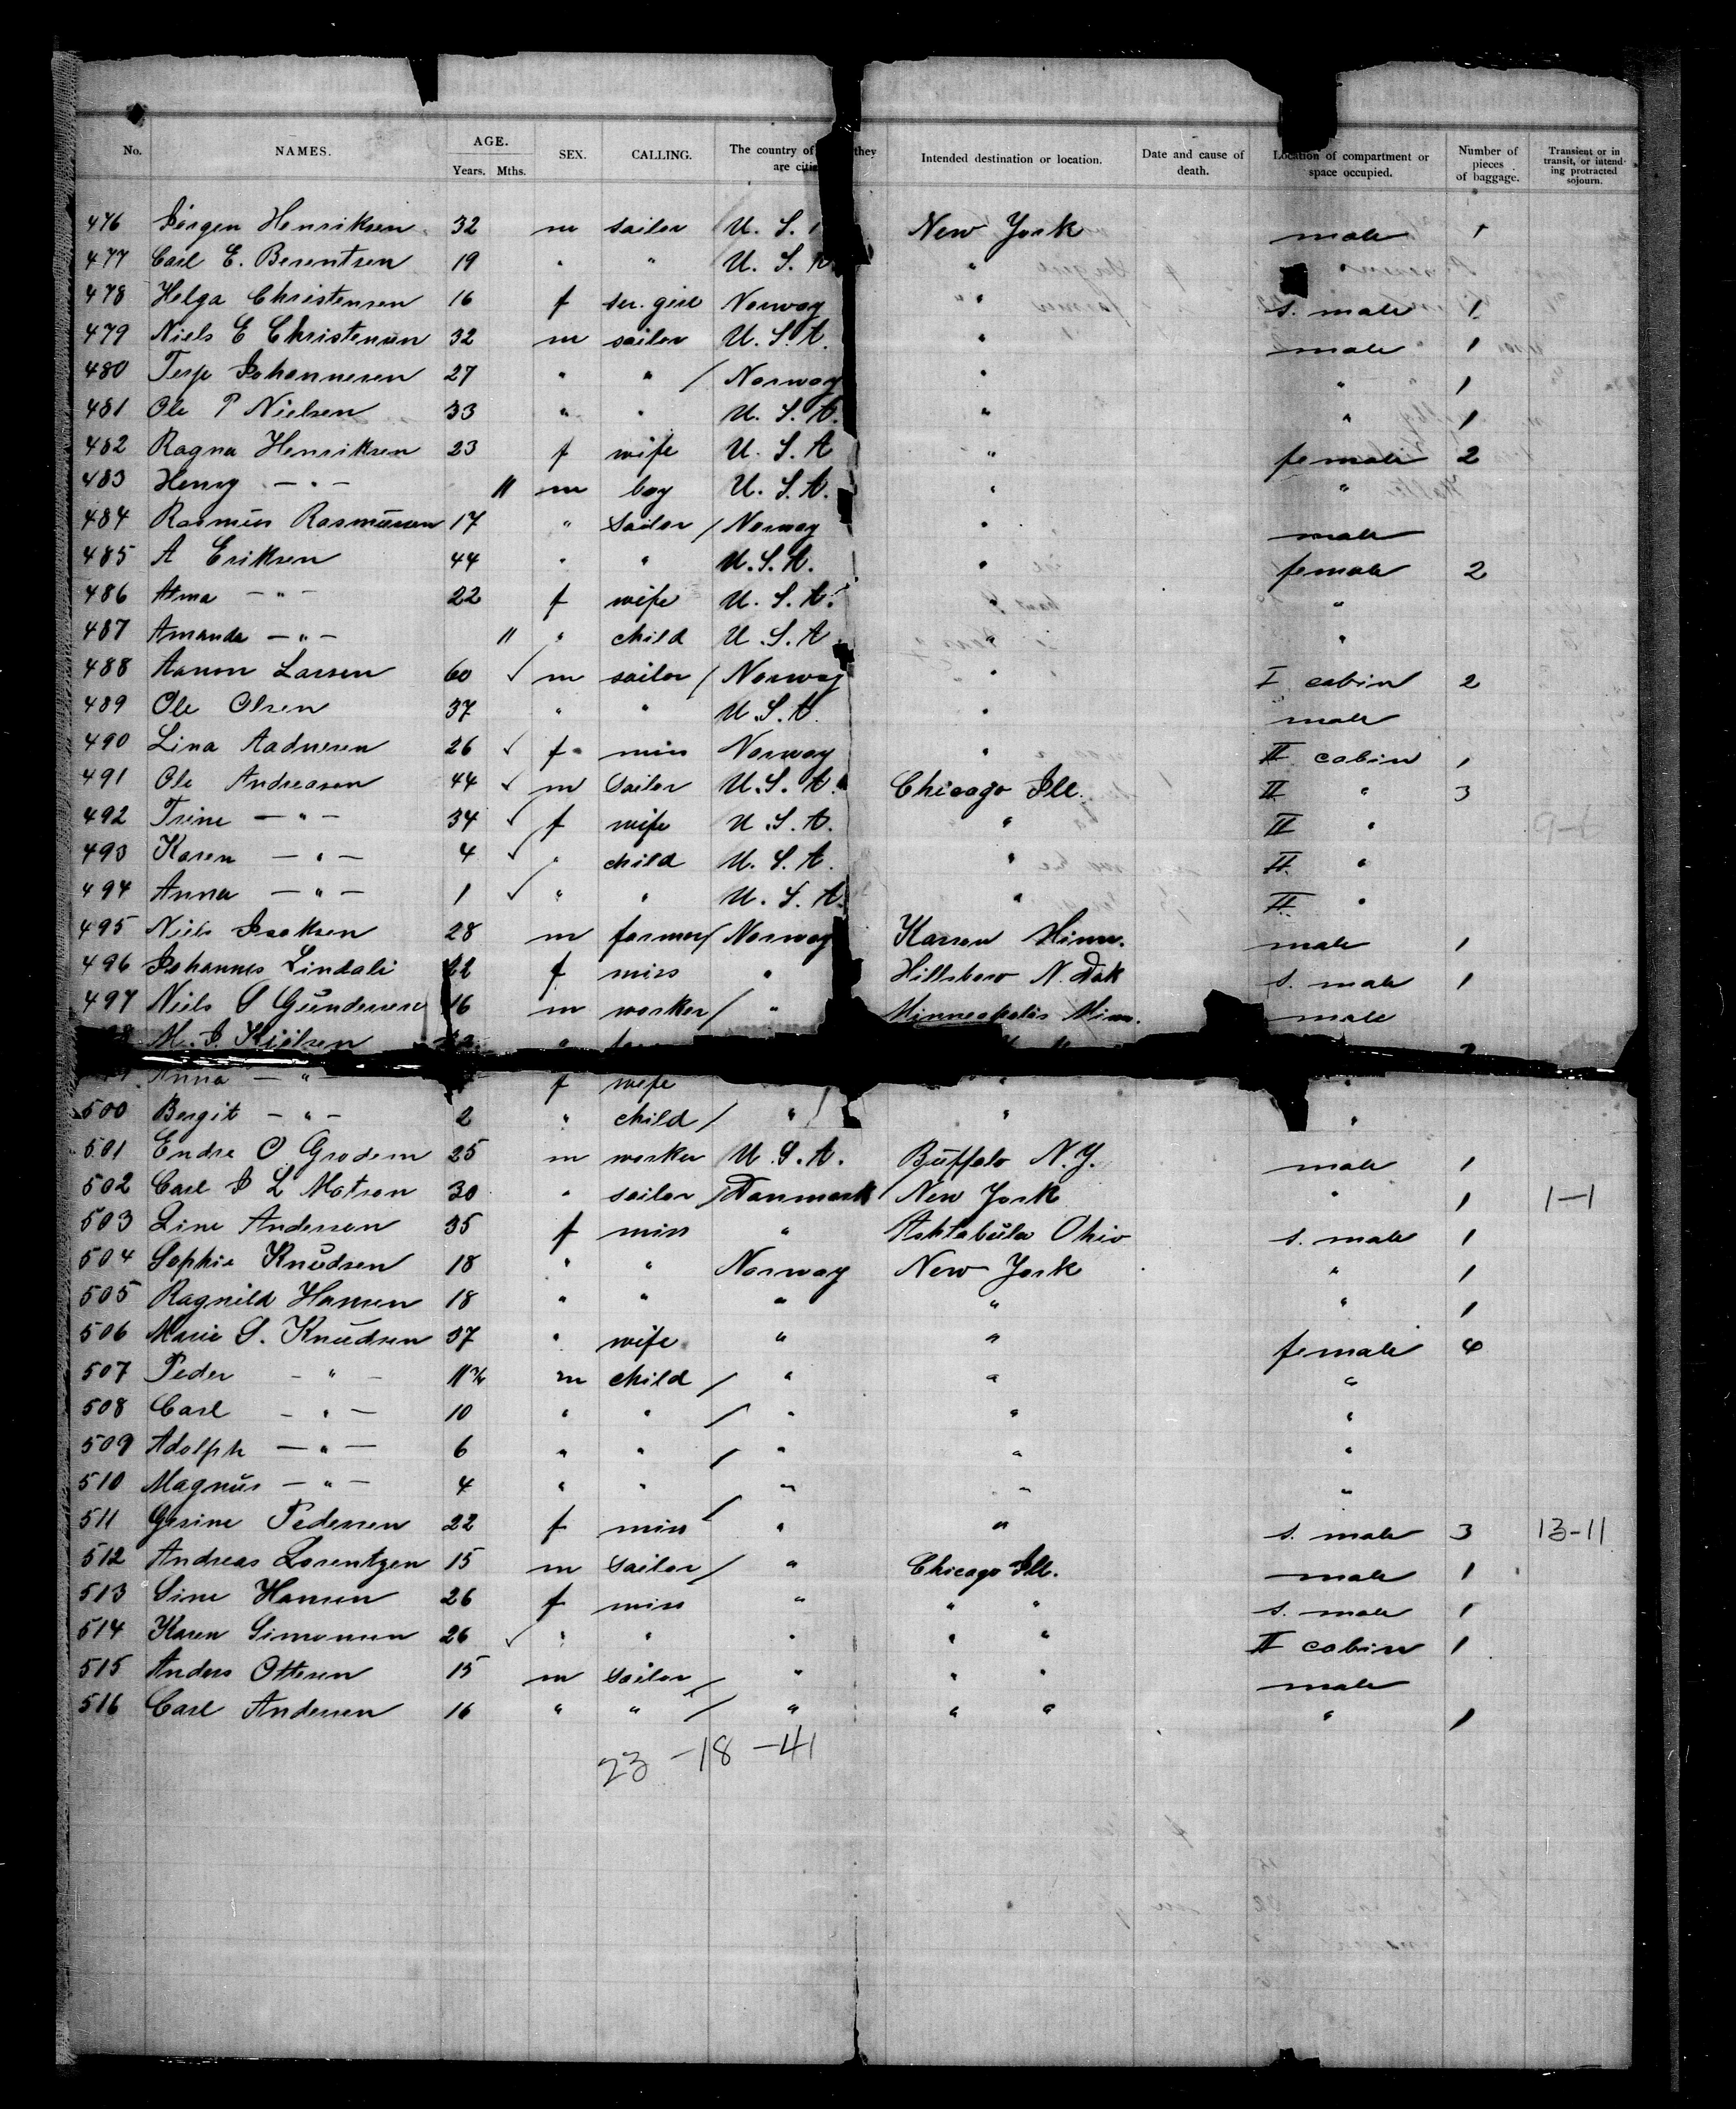 No. NAMES. AGE. Years. Mths. SEX. CALLING. The country of they are citi Intended destination or location. Date and cause of death. Location of compartment or space occupied. Number of pieces of baggage. Transient or in transit, or intending protracted sojourn.
476 Jörgen Henriksen 32 m sailor U. S. New York male 1
477 Carl E. Berentsen 19 " " U. S. A "
478 Helga Christensen 16 f ser. girl Norway " s. male 1
479 Niels E Christensen 32 m sailor U. S. A. " male 1
480 Terje Johannesen 27 " " / Norway " " 1
481 Ole P Nielsen 33 " " U. S. A. " " 1
482 Ragna Henriksen 23 f wife U. S. A " female 2
483 Henry — " — 11 m boy U. S. A. " "
484 Rasmus Rasmussen 17 " sailor / Norway " male
485 A Eriksen 44 " " U. S. A. " female 2
486 Alma — " — 22 f wife U. S. A. " "
487 Amanda — " — 11 " child U. S. A " "
488 Aanon Larsen 60 ✓ m sailor / Norway " I cabin 2
489 Ole Olsen 37 " " U. S. A. " male
490 Lina Aadnesen 26 ✓ f miss Norway " II cabin 1
491 Ole Andreasen 44 ✓ m sailor U. S. A. Chicago Ill. II " 3
492 Trine — " — 34 ✓ f wife U. S. A. " II "
493 Karen — " — 4 ✓ " child U. S. A. " II "
494 Anna — " — 1 ✓ " " U. S. A. " II "
495 Niels Isaksen 28 m farmer / Norway Kasson Minn. male 1
496 Johannes Lindali 22 f miss " Hillsboro N. Dak s. male 1
497 Niels S Gundersen 16 m worker / " Minneapolis Minn. male
M. J. Kjölsen "
Anna — " — f wife " "
500 Bergit — " — 2 " child / " " "
501 Endre O Grodem 25 m worker U. S. A. Buffalo N. Y. male 1
502 Carl J L Matson 30 " sailor / Danmark New York " 1 1—1
503 Line Andersen 35 f miss " Ashtabula Ohio s. male 1
504 Sophie Knudsen 18 " " Norway New York " 1
505 Ragnild Hansen 18 " " " " " 1
506 Marie S. Knudsen 37 " wife " " female 4
507 Peder — " — 11 m child / " " "
508 Carl — " — 10 " " / " " "
509 Adolph — " — 6 " " / " " "
510 Magnus — " — 4 " " / " " "
511 Gesine Pedersen 22 f miss " " s. male 3 13-11
512 Andreas Lorentzen 15 m sailor / " Chicago Ill. male 1
513 Sine Hansen 26 f miss " " " s. male 1
514 Karen Simonsen 26 ✓ " " " " " II cabin 1
515 Anders Ottesen 15 m sailor / " " " male
516 Carl Andersen 16 " " / " " " " 1
23 —18 —41